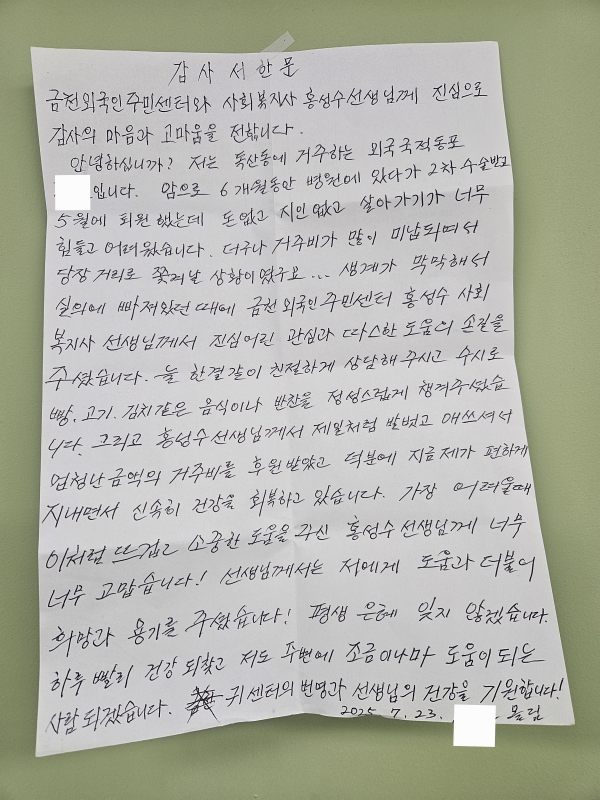 감사 서한문
금천외국인주민센터와 사회복지사 홍성수선생님께 진심으로
감사의 마음과 고마움을 전합니다.
안녕하십니까? 저는 독산동에 거주하는 외국국적동포
입니다. 암으로 6개월동안 병원에 있다가 2차 수술받고
5월에 퇴원했는데 돈없고 지인없고 살아가기가 너무
힘들고 어려웠습니다. 더구나 거주비가 많이 미납되여서
당장 거리로 쫓겨날 상황이였구요... 생계가 막막해서
실의에 빠져있던 때에 금천 외국인주민센터 홍성수 사회
복지사 선생님께서 진심어린 관심과 따스한 도움의 손길을
주셨습니다. 늘 한결같이 친절하게 상담해주시고 수시로
빵, 고기, 김치같은 음식이나 반찬을 정성스럽게 챙겨주셨습
니다. 그리고 홍성수선생님께서 제일처럼 발벗고 애쓰셔서
엄청난 금액의 거주비를 후원받았고 덕분에 지금 제가 편하게
지내면서 신속히 건강을 회복하고 있습니다. 가장 어려울때
이처럼 뜨겁고 소중한 도움을 주신 홍성수 선생님께 너무
너무 고맙습니다! 선생님께서는 저에게 도움과 더불어
희망과 용기를 주셨습니다! 평생 은혜 잊지 않겠습니다.
하루 빨리 건강 되찾고 저도 주변에 조금이나마 도움이 되는
사람 되겠습니다. 귀센터의 번영과 선생님의 건강을 기원합니다!
2025. 7. 23. 올림